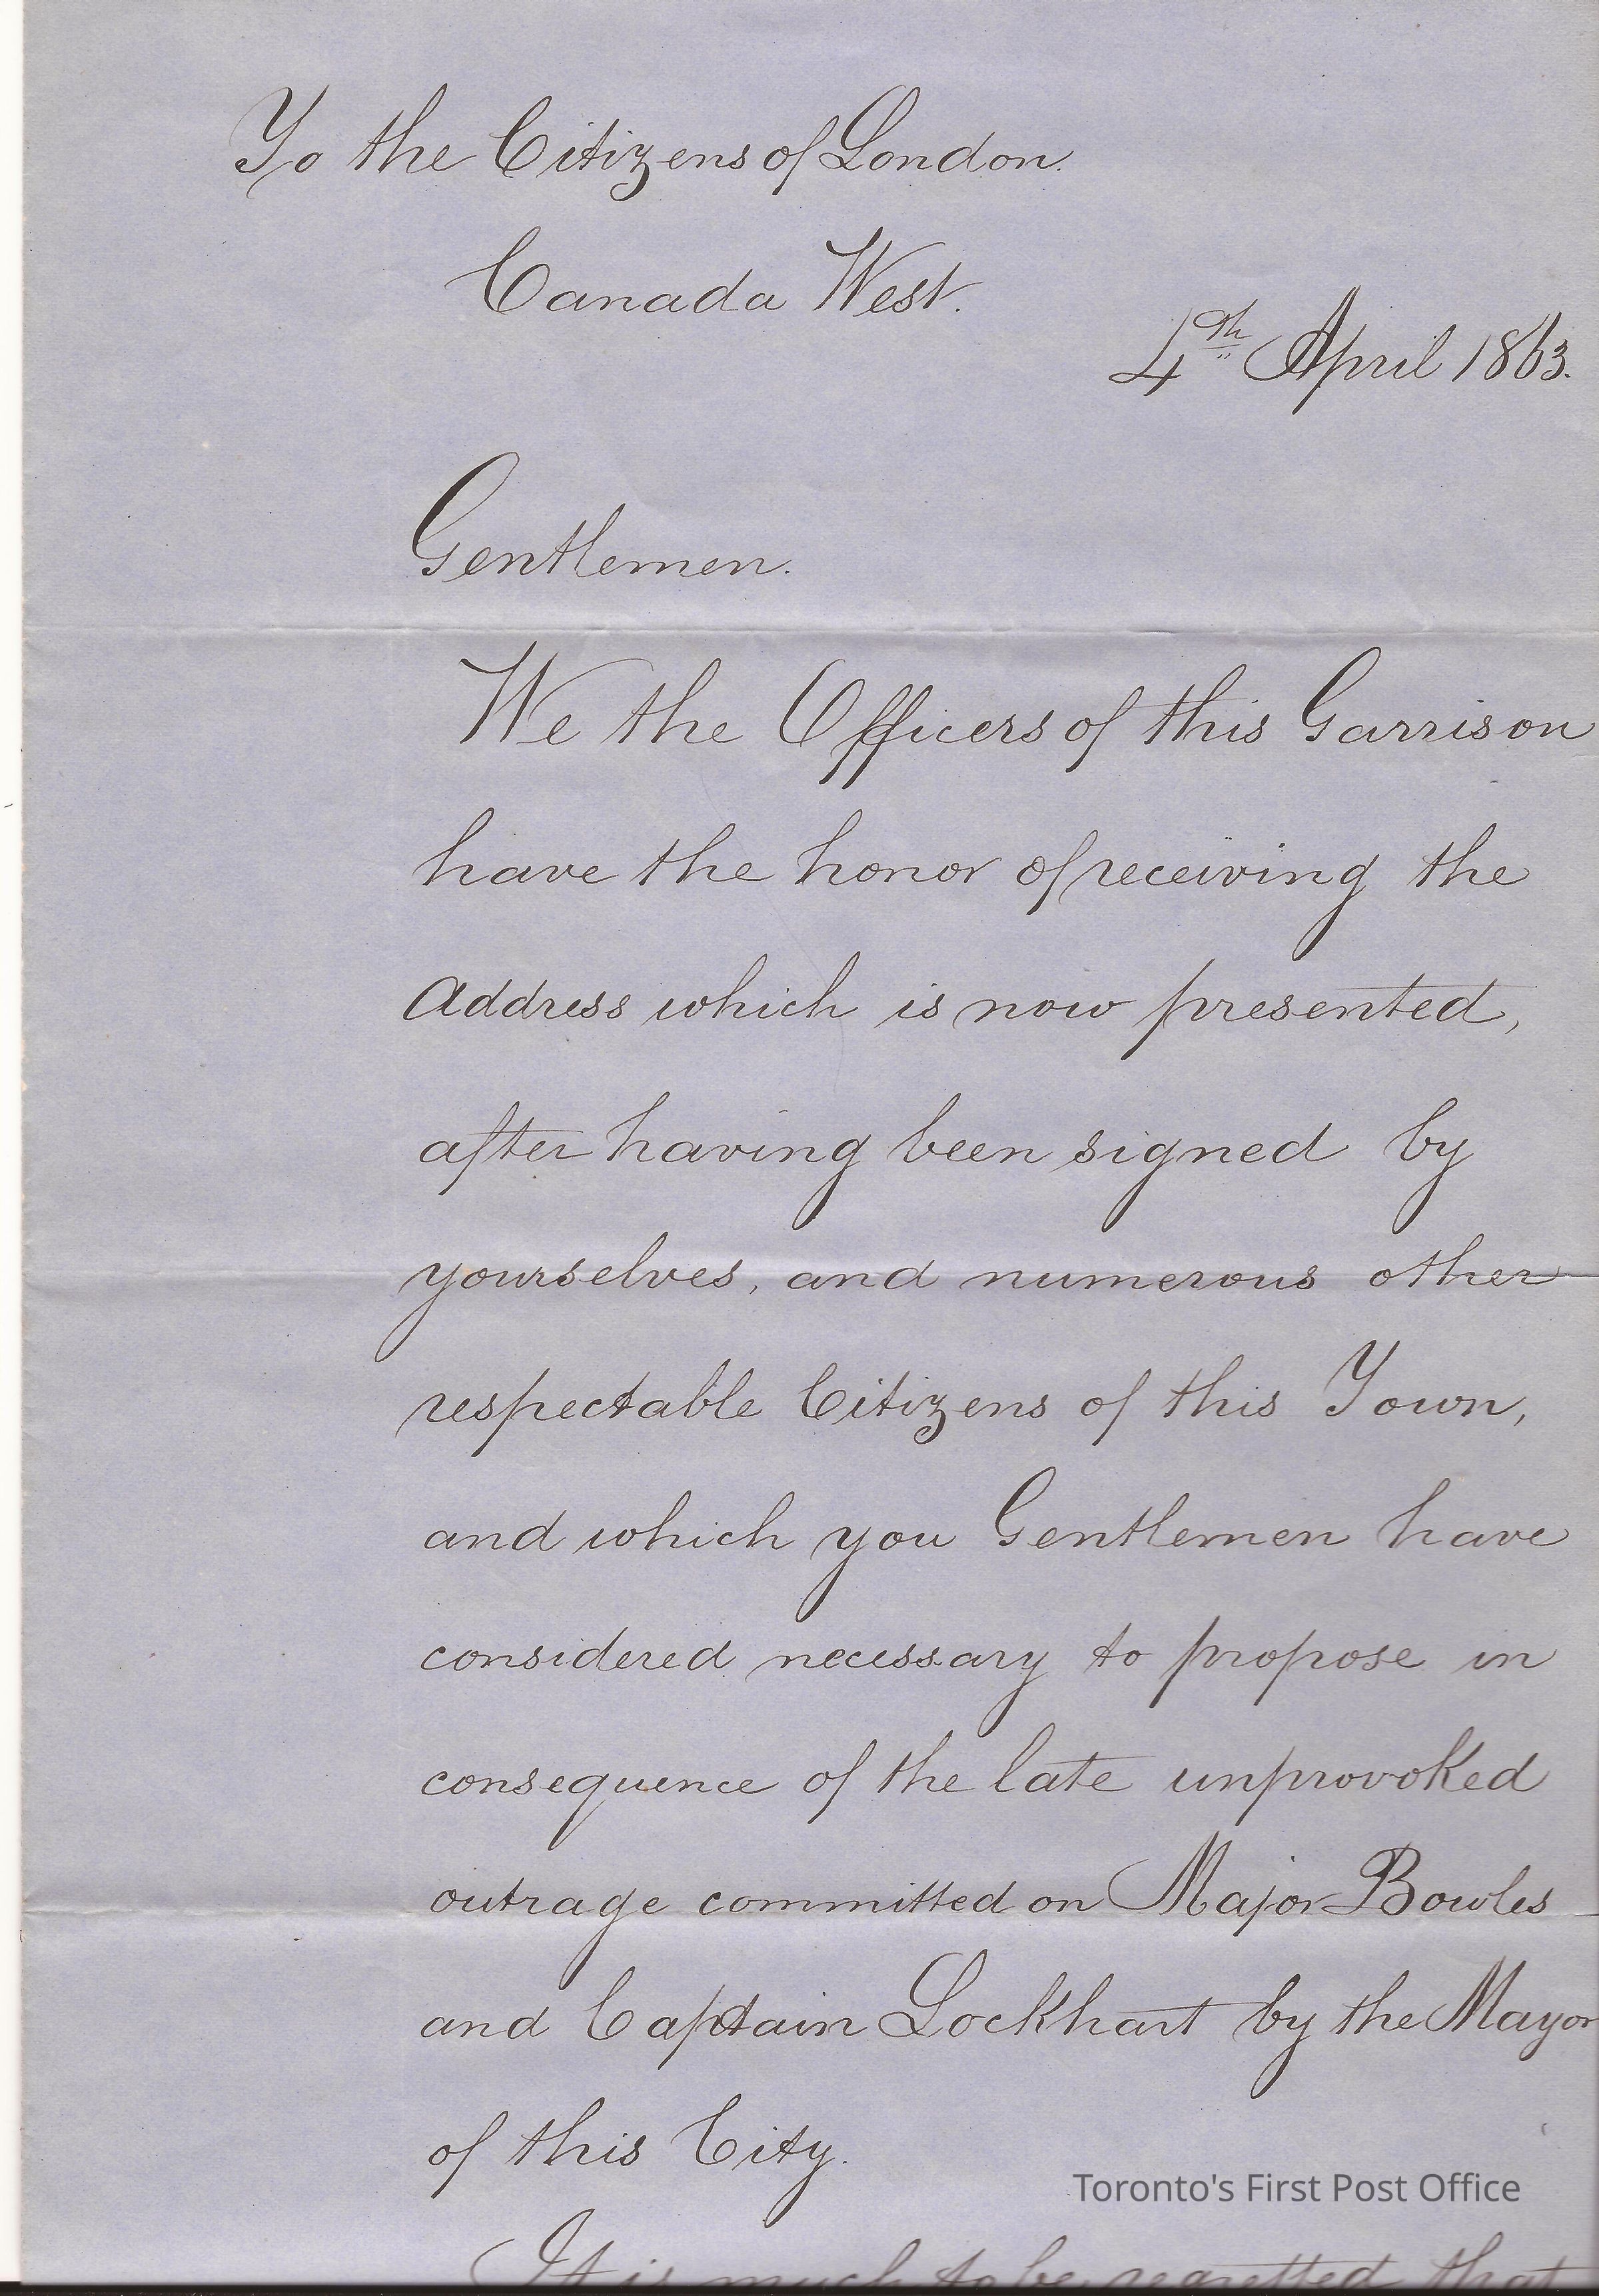 To the Citizens of London.
Canada West.
4th April 1863.
Gentlemen.
We the Officers of this Garrison
have the honor of receiving the
Address which is now presented,
after having been signed by
yourselves, and numerous other
respectable Citizens of this Town,
and which you Gentlemen have
considered necessary to propose in
consequence of the late unprovoked
outrage committed on Major Bowles
and Captain Lockhart by the Mayor
of this City.
Toronto's First Post Office
It is much to be regretted that